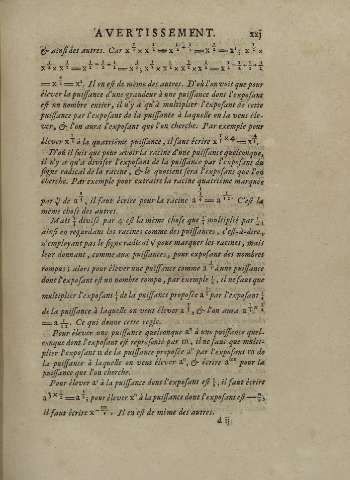 AVERTISSEMENT. xxj
& ainsi des autres. Car
Il en est de même des autres. D'où l'on voit que pour
élever la puissance d'une grandeur à une puissance dont l'exposant
est un nombre entier, il n'y a qu'à multiplier l'exposant de cette
puissance par l'exposant de la puissante à laquelle on la veut éle-
ver, & l'on aura l'exposant que l'on cherche. Par exemple pour
élever à la quatriéme puissance, il faut écrire
D'où il suit que pour avoir la racine d'une puissance quelconque,
il n'y a qu'à diviser l'exposant de la puissance par l'exposant du
signe radical de la racine, & le quotient sera l'exposant que l'on
cherche. Par exemple pour extraire la racine quatriéme marquée
par de a il faut écrire pour la racine C'est la
même chose des autres.
Mais divisé par 4 est la même chose que multiplié par
ainsi en regardant les racines comme des puissances, c'est-à-dire,
n'employant pas le signe radical √ pour marquer les racines, mais
leur donnant, comme aux puissances, pour exposant des nombres
rompus; alors pour élever une puissance comme a à une puissance
dont l'exposant est un nombre rompu, par exemple il ne faut que
multiplier l'exposant de la puissance proposée a par l'exposant
de la puissance à laquelle on veut élever a , & l'on aura
Ce qui donne cette regle.
Pour élever une puissance quelconque aⁿ à une puissance quel-
conque dont l'exposant est représenté par m, il ne faut que multi-
plier l'exposant n de la puissance proposée aⁿ par l'exposant m de
la puissance à laquelle on veut élever aⁿ, & écrire pour la
puissance que l'on cherche.
Pour élever à la puissance dont l'exposant est il faut écrire
pour élever à la puissance dont l'exposant est
il faut écrire Il en est de même des autres.
d ij